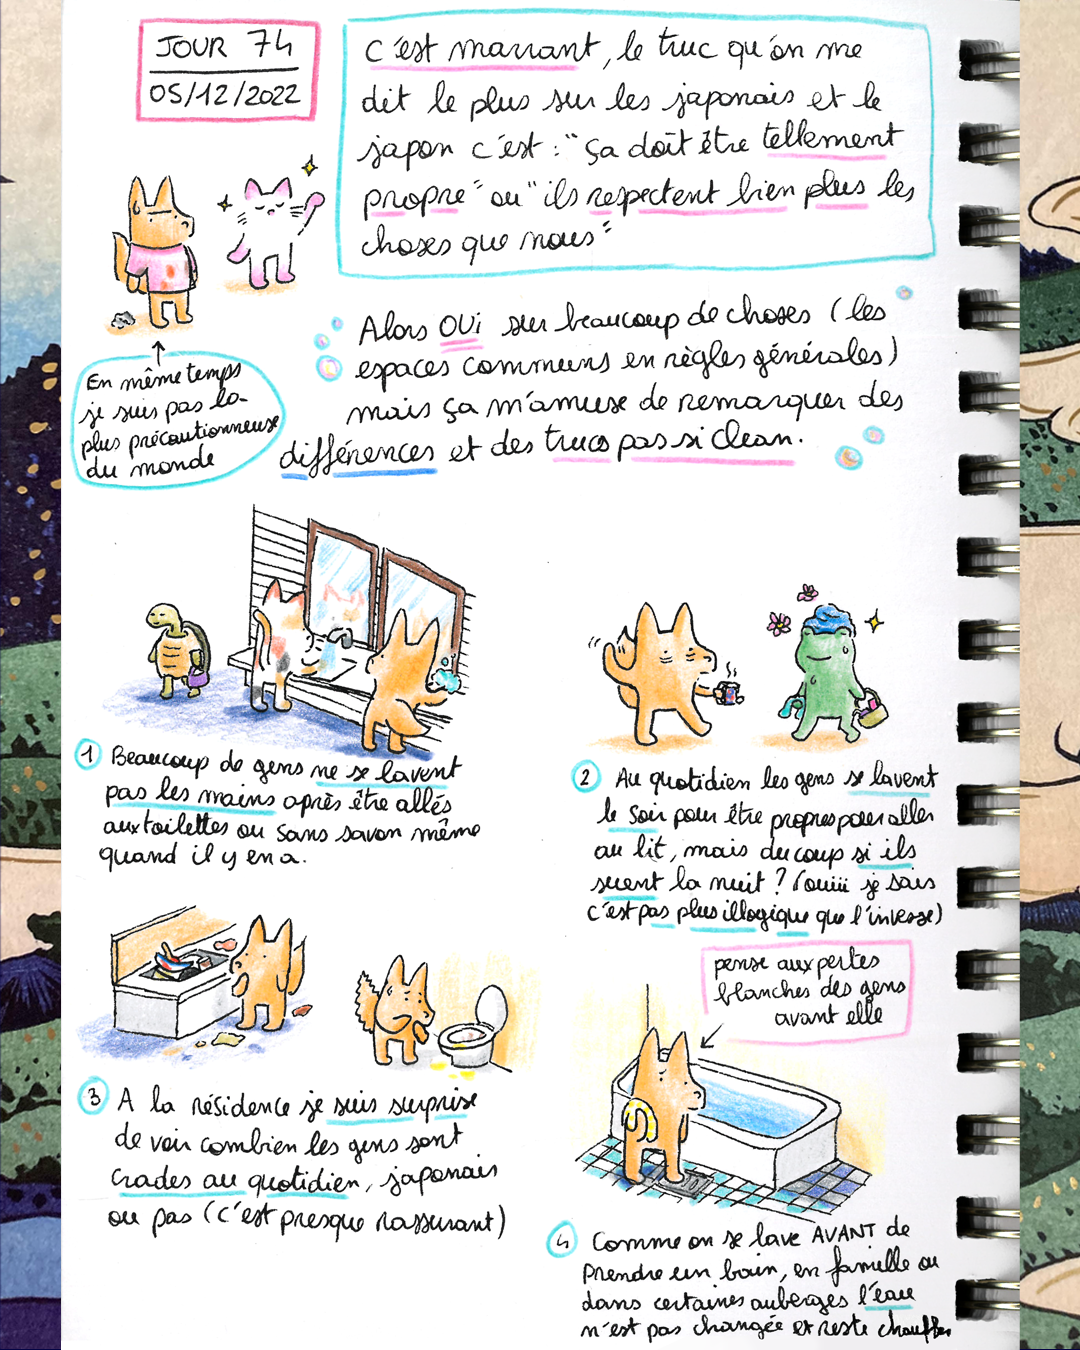 JOUR 74
05/12/2022
C'est marrant, le truc qu'on me
dit le plus sur les japonais et le
japon c'est : "ça doit être tellement
propre" ou "ils respectent bien plus les
choses que nous"
En même temps
je suis pas la
plus précautionneuse
du monde
Alors OUi sur beaucoup de choses (les
espaces communs en règles générales)
mais ça m'amuse de remarquer des
différences et des trucs pas si clean.
1 Beaucoup de gens ne se lavent
pas les mains après être allés
aux toilettes ou sans savon même
quand il y en a.
2 Au quotidien les gens se lavent
le soir pour être propres pour aller
au lit, mais du coup si ils
suent la nuit ? (ouiii je sais
c'est pas plus illogique que l'inverse)
3 A la résidence je suis surprise
de voir combien les gens sont
crades au quotidien, japonais
ou pas (c'est presque rassurant)
pense aux pertes
blanches des gens
avant elle
4 Comme on se lave AVANT de
prendre un bain, en famille ou
dans certaines auberges l'eau
n'est pas changée et reste chauffée